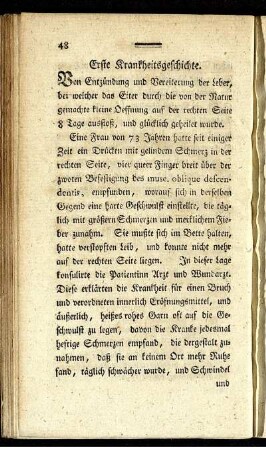 48
Erste Krankheitsgeschichte.
Von Entzündung und Vereiterung der Leber,
bei welcher das Eiter durch die von der Natur
gemachte kleine Oeffnung auf der rechten Seite
8 Tage ausfloß, und glücklich geheilet wurde.
Eine Frau von 73 Jahren hatte seit einiger
Zeit ein Drücken mit gelindem Schmerz in der
rechten Seite, vier quer Finger breit über der
zwoten Befestigung des musc. oblique descen-
dentis, empfunden, worauf sich in derselben
Gegend eine harte Geschwulst einstellte, die täg-
lich mit größern Schmerzen und merklichem Fie-
ber zunahm. Sie mußte sich im Bette halten,
hatte verstopften Leib, und konnte nicht mehr
auf der rechten Seite liegen. In dieser Lage
konsulirte die Patientinn Arzt und Wundarzt.
Diese erklärten die Krankheit für einen Bruch
und verordneten innerlich Eröfnungsmittel, und
äußerlich, heißes rohes Garn oft auf die Ge-
schwulst zu legen, davon die Kranke jedesmal
heftige Schmerzen empfand, die dergestalt zu-
nahmen, daß sie an keinem Ort mehr Ruhe
fand, täglich schwächer wurde, und Schwindel
und